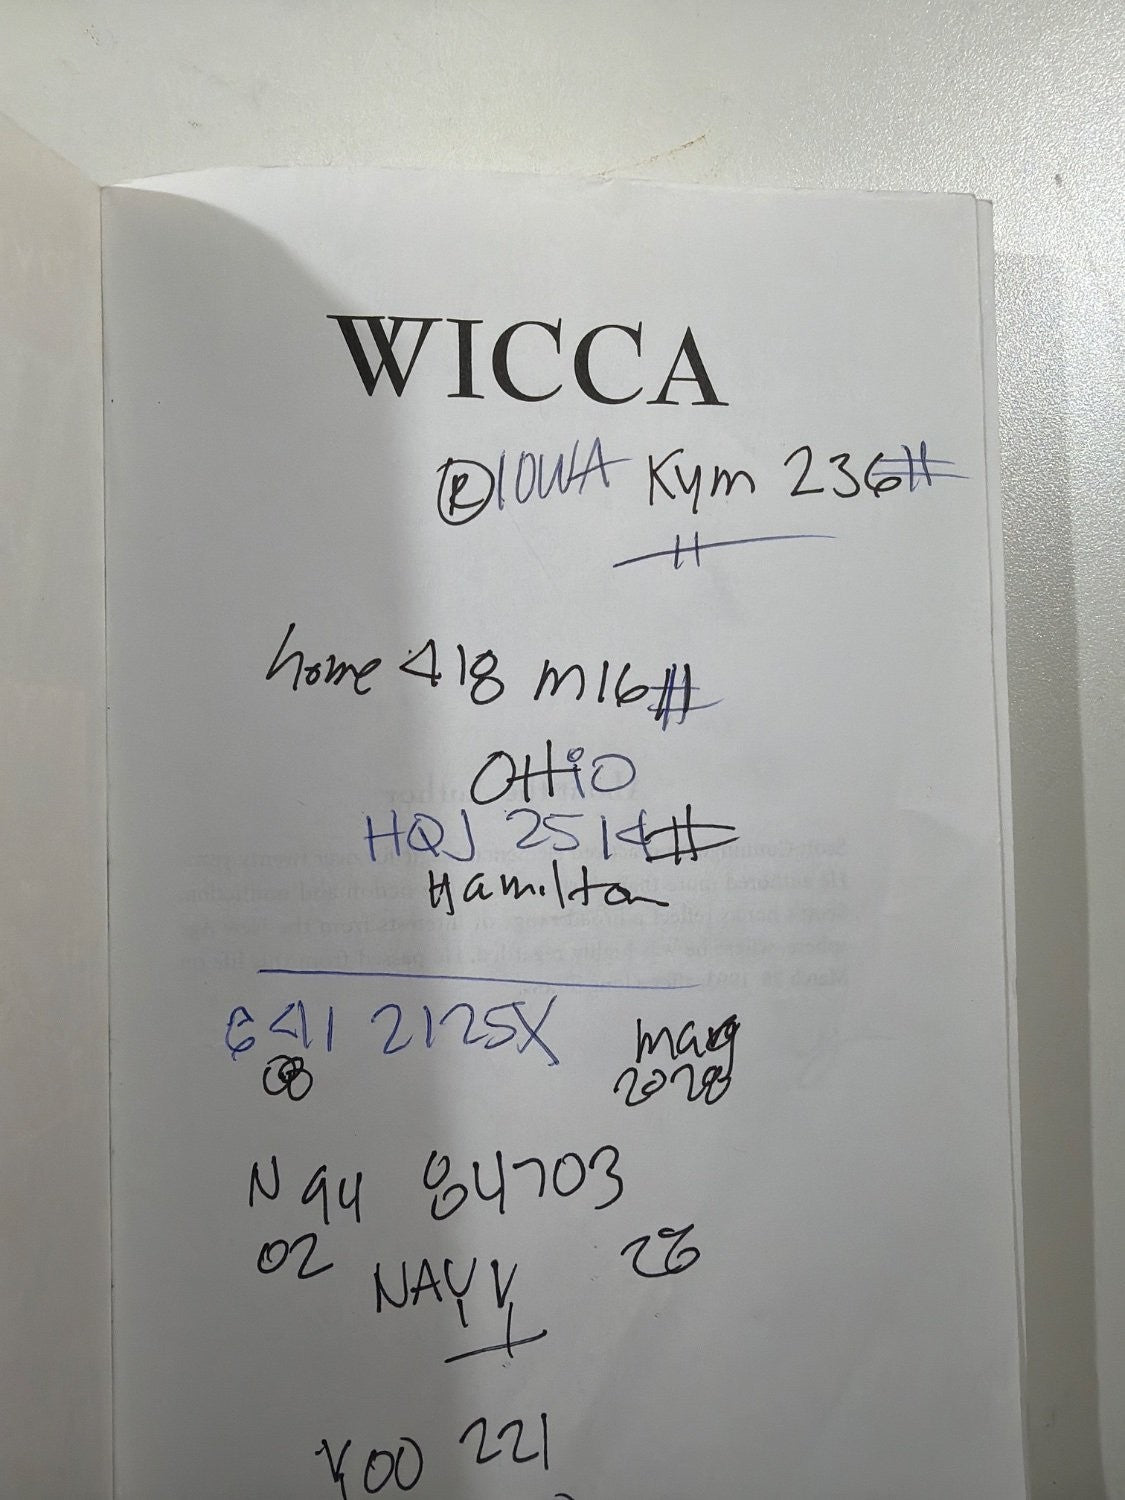 WICCA
®IOWA Kym 236#
#
home 418 M16#
OHiO
HQJ 2514#
Hamilton
6411 2125X
08
2028
N94 84703
02 26
NAVY
Y00 221